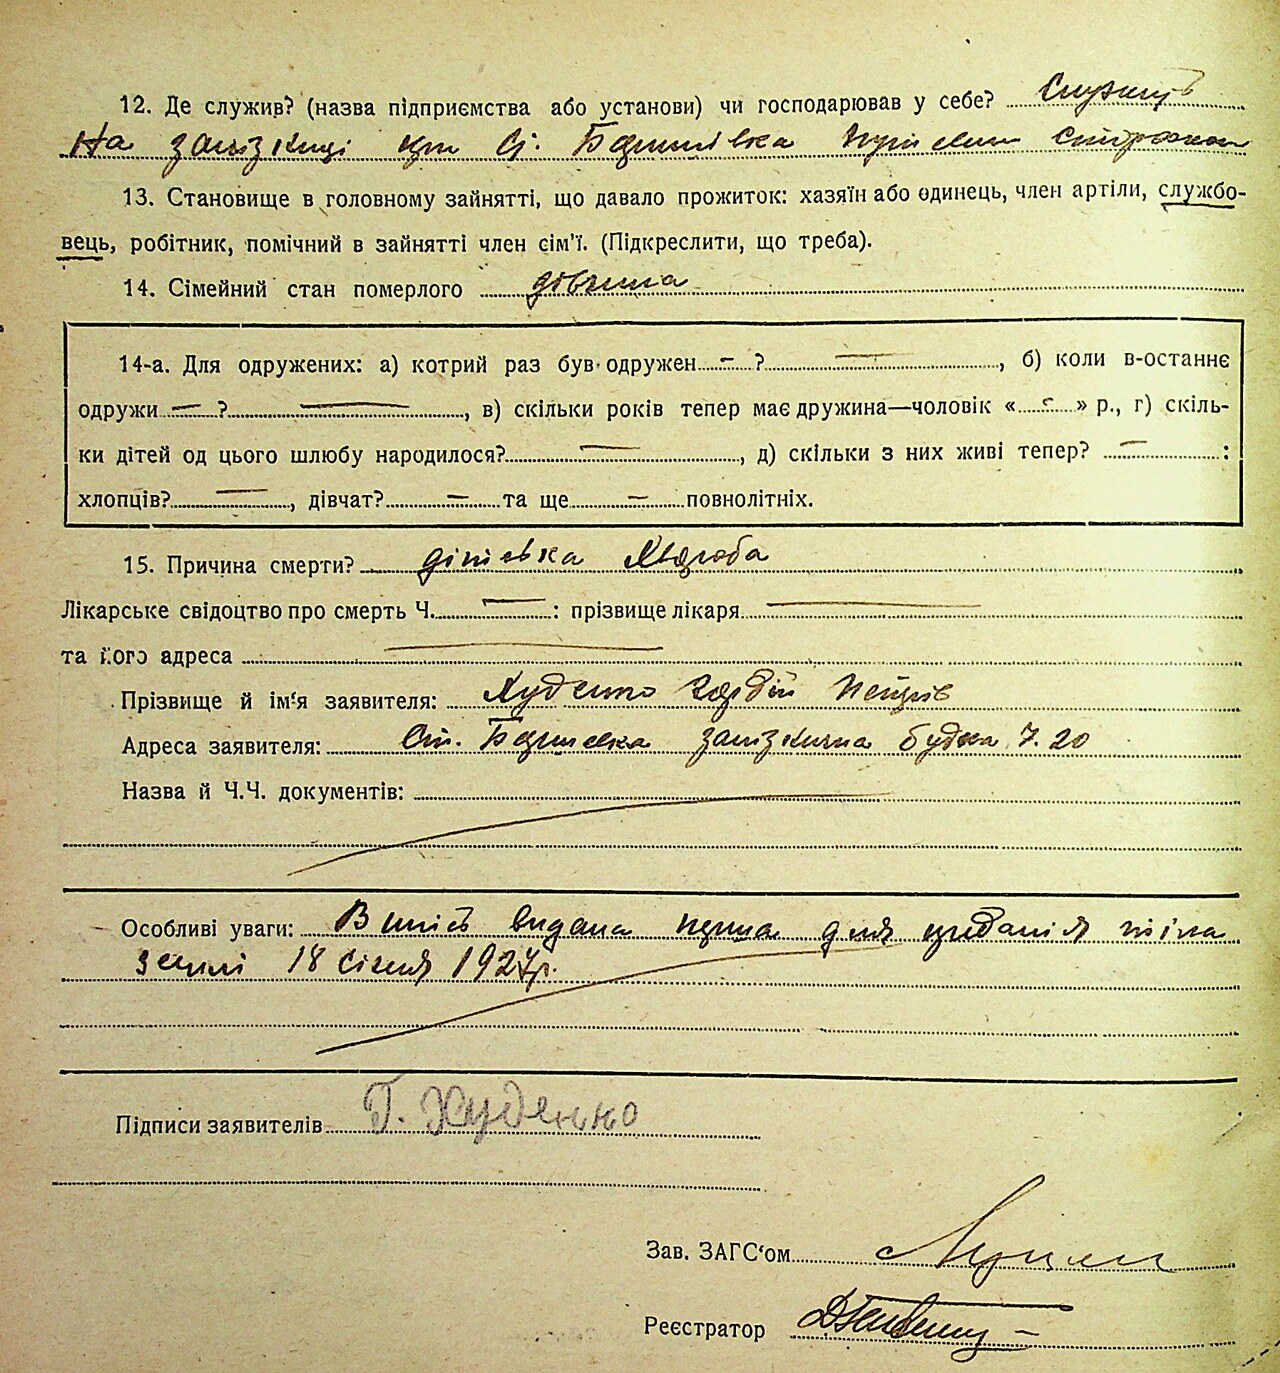 12. Де служив? (назва підприємства або установи) чи господарював у себе? Служить
На залізниці при Ст. Баришівка
13. Становище в головному зайнятті, що давало прожиток: хазяїн або одинець, член артіли, службо-
вець, робітник, помічний в зайнятті член сім'ї. (Підкреслити, що треба).
14. Сімейний стан померлого дівчина
14-а. Для одружених: а) котрий раз був одружен — ? —, б) коли в-останнє
одружи — ? —, в) скільки років тепер має дружина—чоловік « — » р., г) скіль-
ки дітей од цього шлюбу народилося? —, д) скільки з них живі тепер? — :
хлопців? —, дівчат? — та ще — повнолітніх.
15. Причина смерти? Хвороба
Лікарське свідоцтво про смерть Ч. — : прізвище лікаря —
та його адреса —
Прізвище й ім'я заявителя: Худенко Гордій
Адреса заявителя: Ст. Баришевка залізнична будка Ч. 20
Назва й Ч.Ч. документів:
Особливі уваги: видана для тіла
землі 18 січня 1927р.
Підписи заявителів Г. Худенко
Зав. ЗАГС'ом
Реєстратор